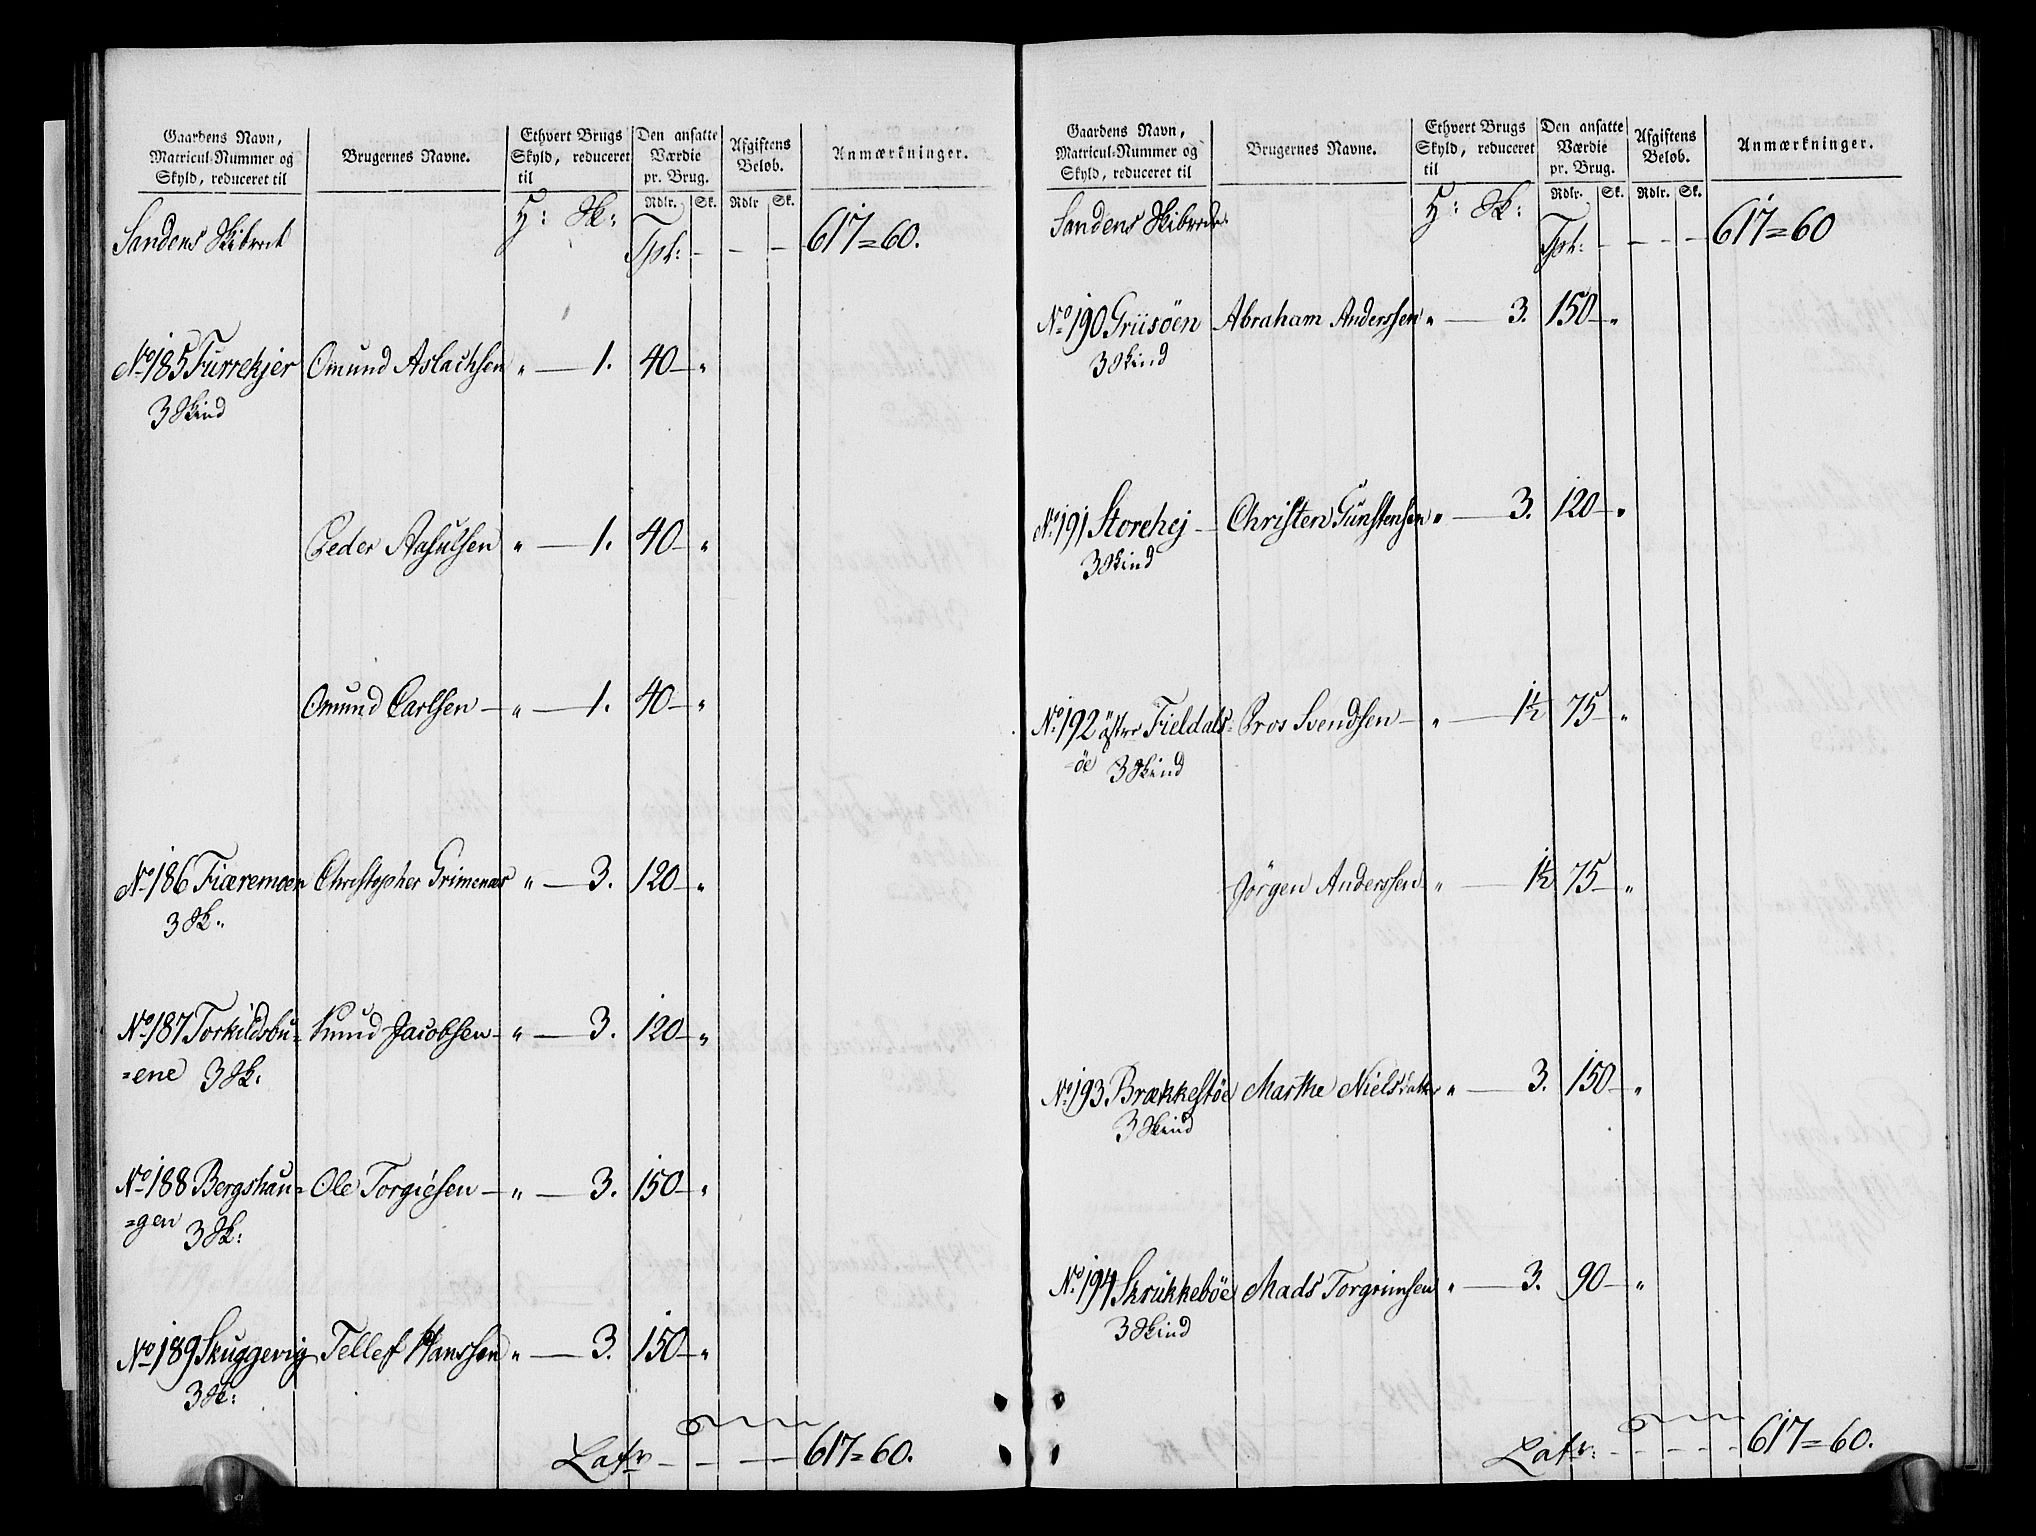 Gaardens Navn, Matricul-Nummer og Skyld, reduceret til | Brugernes Navne. | Ethvert Brugs Skyld, reduceret til | Den ansatte Værdie pr. Brug. | Afgiftens Beløb. | Anmærkninger.
H: Sk: | Rdlr. Sk. | Rdlr Sk.
Sandens Skibred Tpt: - - - 617=60.
No 185 Furrekjer Omund Aslachsen " — 1. 40 — "
3 Skind
Peder Aasulsen " — 1. 40 — "
Omund Carlsen — " — 1. 40 — "
No 186 Fiæremoen Christopher Grimenæs " — 3. 120 — "
3 Sk.
No 187 Torkildsbu- Knud Jacobsen — " — 3. 120 — "
=ene 3 Sk.
No 188 Bergshau= Ole Torgiesen — " — 3. 150 — "
=gen 3 Sk:
No 189 Skuggevig Tellef Hanssen " — 3. 150 — "
3 Sk:
Latr — - — 617=60.
Gaardens Navn, Matricul-Nummer og Skyld, reduceret til | Brugernes Navne. | Ethvert Brugs Skyld, reduceret til | Den ansatte Værdie pr. Brug. | Afgiftens Beløb. | Anmærkninger.
H: Sk: | Rdlr. Sk. | Rdlr. Sk.
Sandens Skibrede Tpt: - - - - 617=60
No 190 Griisöen Abraham Anderssen " — 3. 150 — "
3 Skind
No 191 Storehej — Christen Gunstensen " — 3. 120 — "
3 Skind
No 192 öster Fieldals= Bros Svendsen — " — 1½ 75 — "
=öe 3 Skind
Jörgen Anderssen " — 1½ 75 — "
No 193 Brækkestöe Marthe Nielsdatter " — 3. 150 — "
3 Skind
No 194 Skrukkeböe Mads Torgrimsen " — 3. 90 — "
3 Skind
Latr: - - - - 617=60.